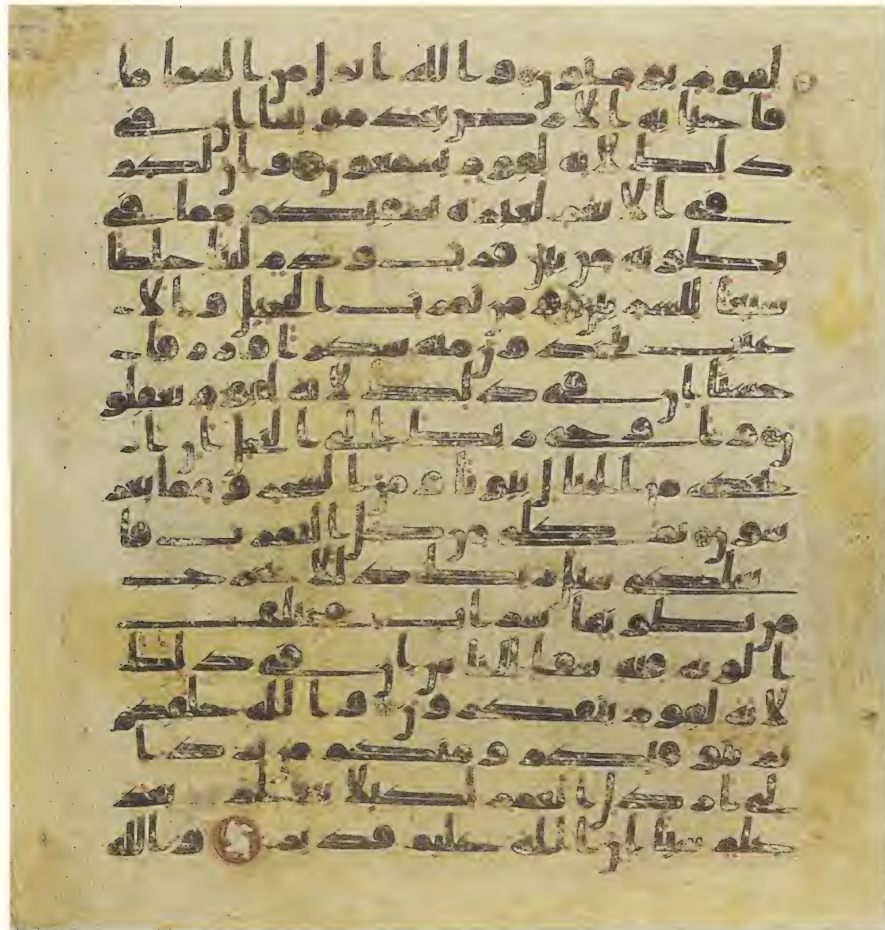 لقوم يومنون والله انزل من السما ما
فاحيا به الارض بعد موتها ان في
ذلك لاية لقوم يسمعون وان لكم
في الانعم لعبرة نسقيكم مما في
بطونه من بين فرث ودم لبنا خلصا
سيغا للشربين ومن ثمرت النخيل والا
عنب تتخذون منه سكرا ورزقا
حسنا ان في ذلك لاية لقوم يعقلو
ن واوحى ربك الى النحل ان ا
تخذي من الجبال بيوتا ومن الشجر ومما يعر
شون ثم كلي من كل الثمرت فا
سلكي سبل ربك ذللا يخرج
من بطونها شراب مختلف
الونه فيه شفا للناس ان في ذلك
لاية لقوم يتفكرون والله خلقكم
ثم يتوفيكم ومنكم من يرد ا
لى ارذل العمر لكيلا يعلم بعد
علم شيا ان الله عليم قدير والله